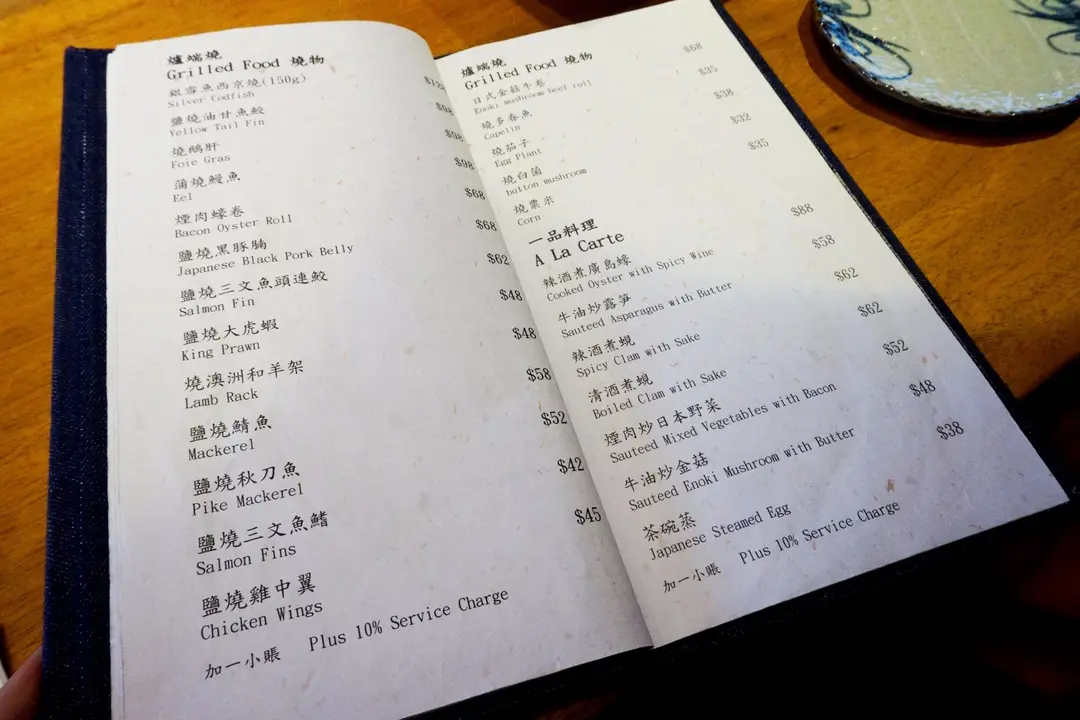 爐端燒
Grilled Food 燒物
銀雪魚西京燒(150g)
Silver Codfish
鹽燒油甘魚鮫 $98
Yellow Tail Fin
燒鵝肝 $98
Foie Gras
蒲燒鰻魚 $98
Eel
煙肉蠔卷 $68
Bacon Oyster Roll
鹽燒黑豚腩 $68
Japanese Black Pork Belly
鹽燒三文魚頭連鮫 $62
Salmon Fin
鹽燒大虎蝦 $48
King Prawn
燒澳洲和羊架 $48
Lamb Rack
鹽燒鯖魚 $58
Mackerel
鹽燒秋刀魚 $52
Pike Mackerel
鹽燒三文魚鰭 $42
Salmon Fins
鹽燒雞中翼 $45
Chicken Wings
加一小賬 Plus 10% Service Charge
爐端燒
Grilled Food 燒物
日式金菇牛卷 $68
Enoki mushroom beef roll
燒多春魚 $35
Capelin
燒茄子 $38
Egg Plant
燒白菌 $32
button mushroom
燒粟米 $35
Corn
一品料理
A La Carte
辣酒煮廣島蠔 $88
Cooked Oyster with Spicy Wine
牛油炒露笋 $58
Sauteed Asparagus with Butter
辣酒煮蜆 $62
Spicy Clam with Sake
清酒煮蜆 $62
Boiled Clam with Sake
煙肉炒日本野菜 $52
Sauteed Mixed Vegetables with Bacon
牛油炒金菇 $48
Sauteed Enoki Mushroom with Butter
茶碗蒸 $38
Japanese Steamed Egg
加一小賬 Plus 10% Service Charge